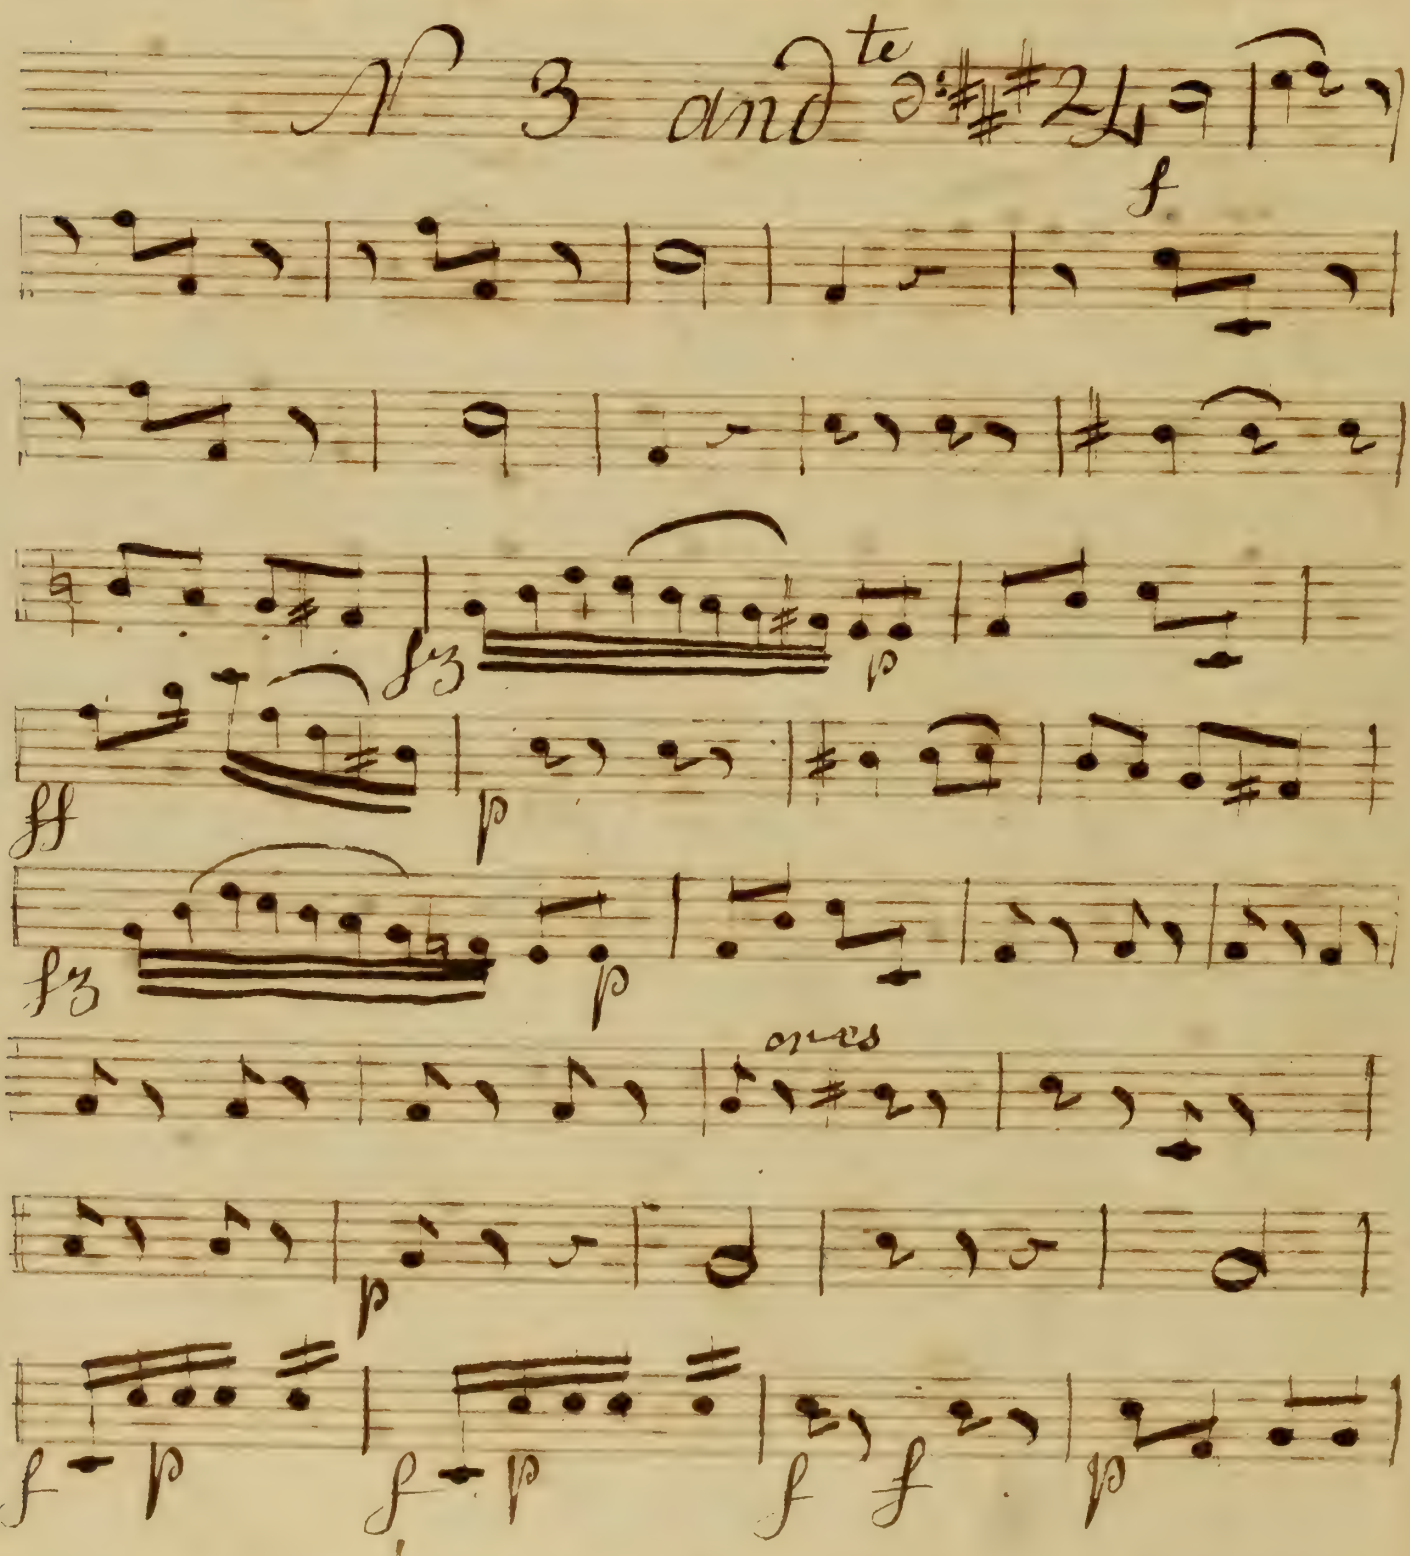 N 3 and te 24
f
fz p
ff p
fz p
cres
p
f p f p f f p